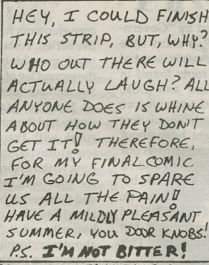 HEY, I COULD FINISH
THIS STRIP, BUT, WHY?
WHO OUT THERE WILL
ACTUALLY LAUGH? ALL
ANYONE DOES IS WHINE
ABOUT HOW THEY DON'T
GET IT! THEREFORE,
FOR MY FINAL COMIC
I'M GOING TO SPARE
US ALL THE PAIN!
HAVE A MILDLY PLEASANT
SUMMER, YOU DOOR KNOBS!
P.S. I'M NOT BITTER!